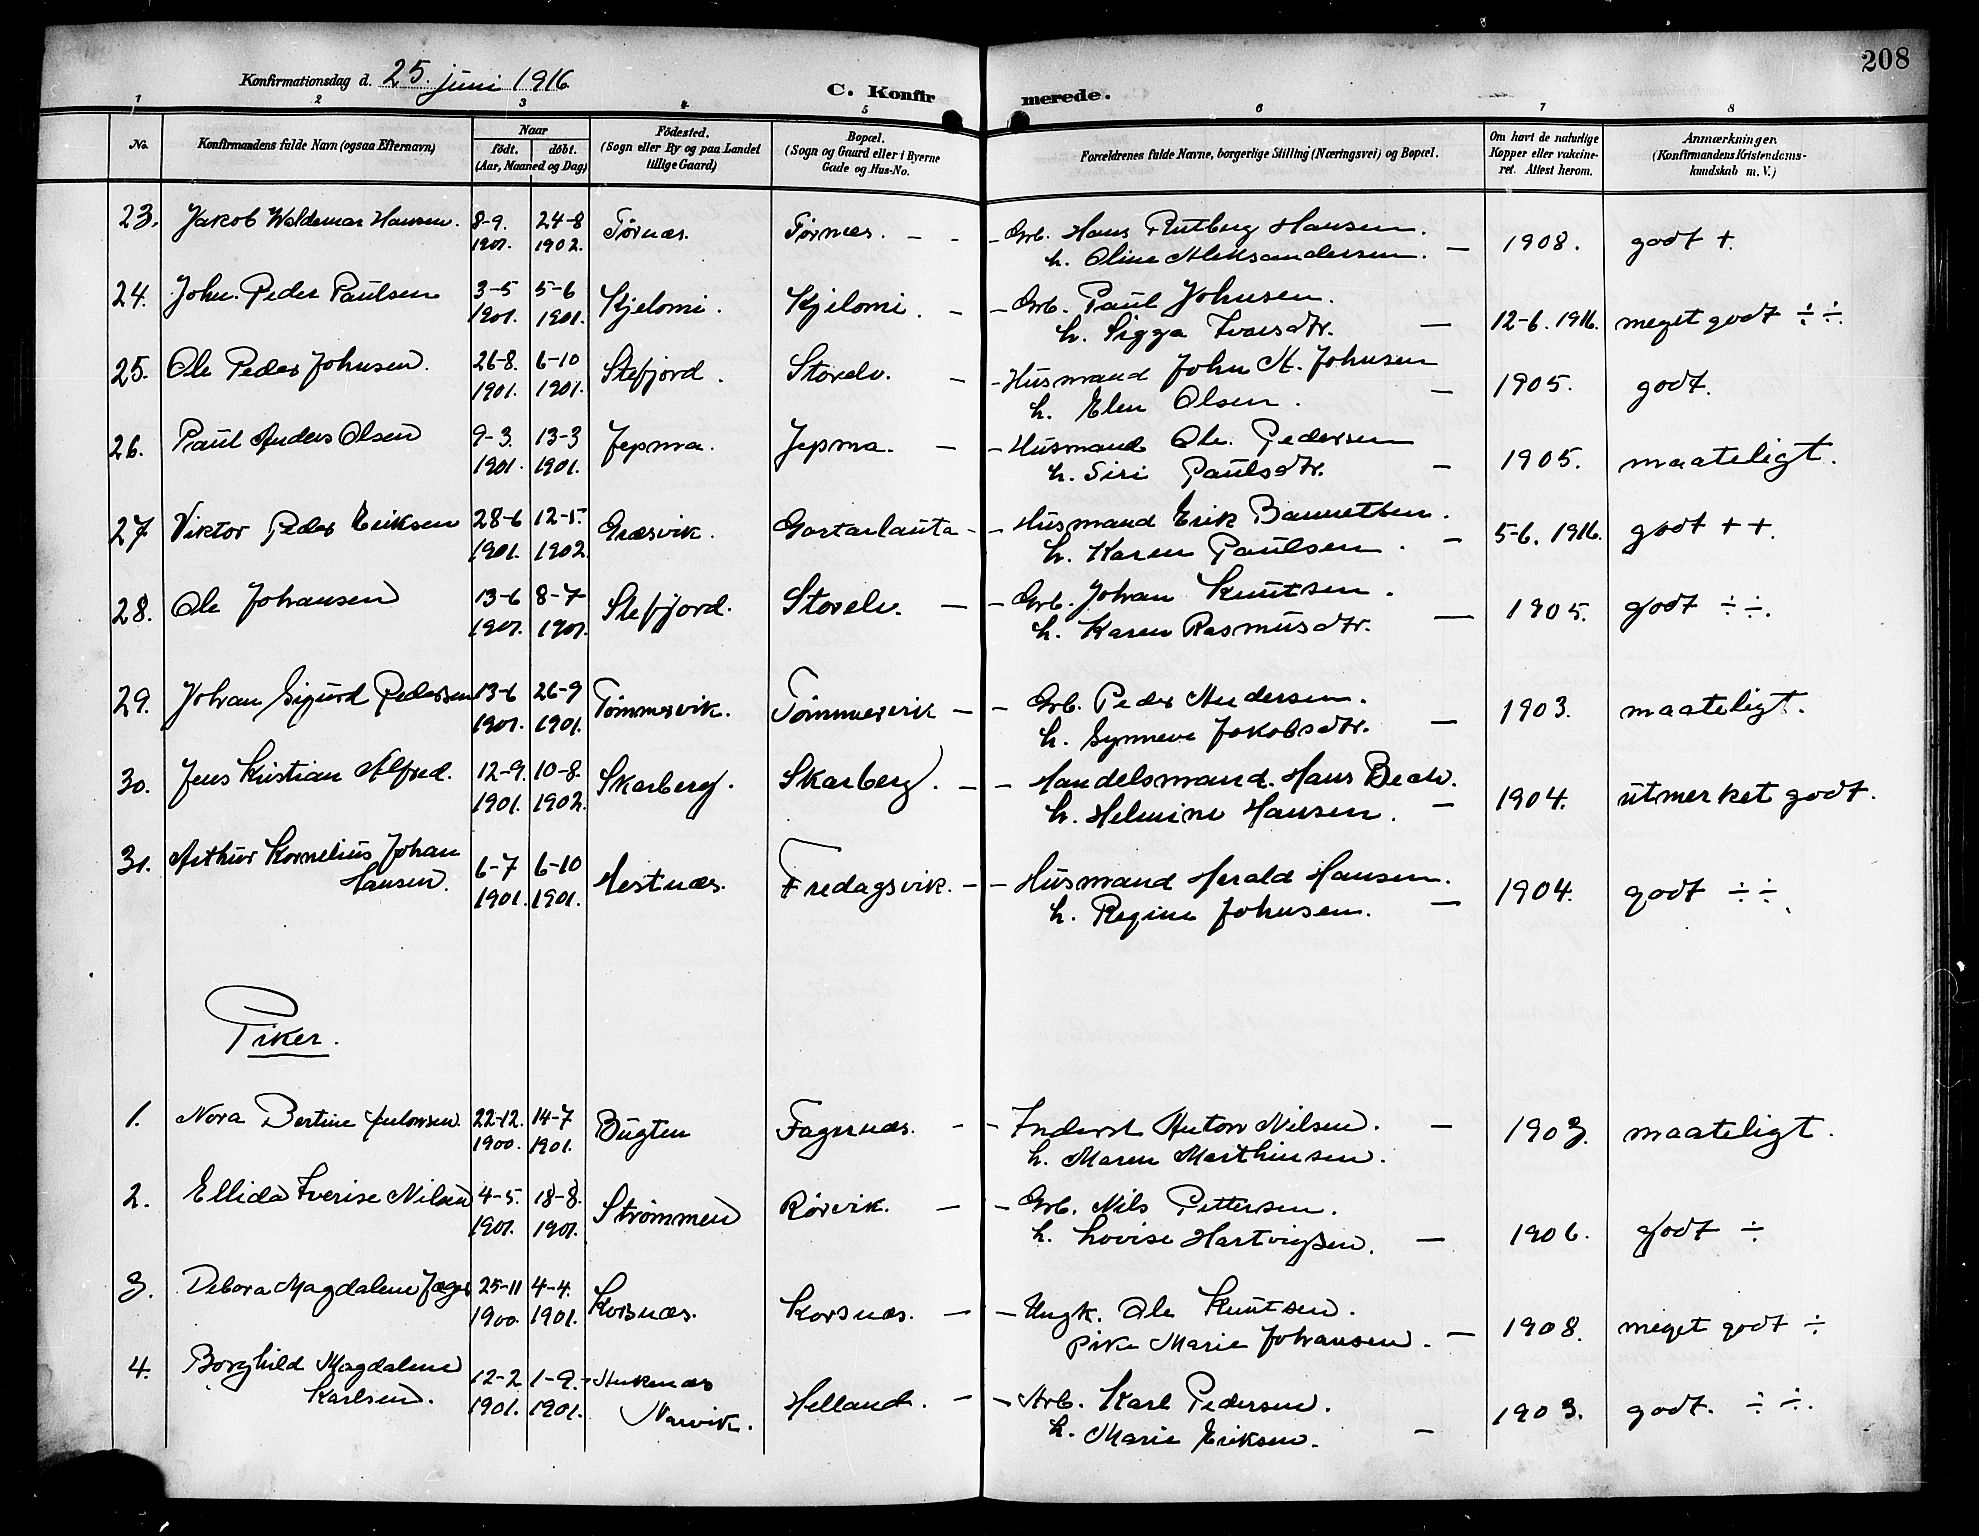 208
Konfirmationsdag d. 25. juni 1916
C. Konfirmerede.
1 2 3 4 5 6 7 8
No. | Konfirmandens fulde Navn (ogsaa Efternavn) | Naar født. døbt. (Aar, Maaned og Dag) | Fødested. (Sogn eller By og paa Landet tillige Gaard) | Bopæl. (Sogn og Gaard eller i Byerne Gade og Hus-No. | Forældrenes fulde Navne, borgerlige Stilling (Næringsvei) og Bopæl. | Om havt de naturlige Kopper eller vakcineret. Attest herom. | Anmærkninger. (Konfirmandens Kristendomskundskab m. V.)
23. Jakob Waldemar Hansen. 8-9. 24-8 Tørnæs. Tørnæs. - - - Grb. Hans Rutberg Hansen.
1901. 1902. h. Oline Aleksandersen. — 1908. godt +.
24. John. Peder Paulsen 3-5 5-6 Kjelomi. Kjelomi. - - Grb. Paul Johnsen.
1901. 1901. h. Sigga Ivarsdtr. — 12-6. 1916. meget godt ÷ ÷.
25. Ole Peder Johnsen. 26-8. 6-10 Stefjord. Storelv. - - Husmand John M. Johnsen
1901. 1901. h. Elen Olsen. — 1905. godt.
26. Paul Anders Olsen 9-3. 13-3 Jepma. Jepma. — - Husmand Ole. Pedersen
1901. 1901. h. Siri Paulsdtr. - 1905. maateligt.
27 Viktor Peder Eriksen 28-6 12-5. Græsvik. - - Husmand Erik
1901. 1902 h. Karen Paulsen. — 5-6. 1916. godt + +.
28. Ole Johansen 13-6 8-7 Stefjord. Storelv. — - Grb. Johan Knutsen.
1901. 1901. h. Karen Rasmusdtr. — 1905. godt ÷ ÷.
29. Johan Sigurd Pedersen 13-6 26-9 Tømmervik. Tømmervik - - Grb. Peder Andersen.
1901. 1901. h. Synneve Jakobsdtr. — 1903. maateligt.
30. Jens Kristian Alfred. 12-9. 10-8. Skarberg. Skarberg. - - Handelsmand. Hans Bech.
1901. 1902. h. Helmine Hansen. — 1904. utmerket godt.
31. Arthur Kornelius Johan
Hansen. 6-7 6-10 Hestnæs. Fredagsvik. - - Husmand Harald Hansen.
1901. 1901. h. Regine Johnsen. — 1904. godt ÷ ÷.
Piker.
1. Nora Bertine Antonsen. 22-12. 14-7 Bugten Fagernæs. - - Inderst Anton Nilsen. —
1900. 1901. h. Maren Marthinsen. 1903. maateligt.
2. Ellida Iverise Nilsen 4-5. 18-8. Strømmen Rørvik. - - Grb. Nils Pettersen.
1901. 1901. h. Lovise Hartvigsen. — 1906. godt ÷
3. Debora Magdalene Jæger 25-11 4-4. Korsnæs. Korsnæs. — - Ungk. Ole Knutsen.
1900. 1901. pike Marie Johansen. — 1908. meget godt ÷
4. Borghild Magdalene
Karlsen. 12-2 1-9. Ankenæs
1901. 1901. Narvik. Helland. - - Arb. Karl Pedersen.
h. Marie Eriksen. - 1903. godt. ÷ ÷.